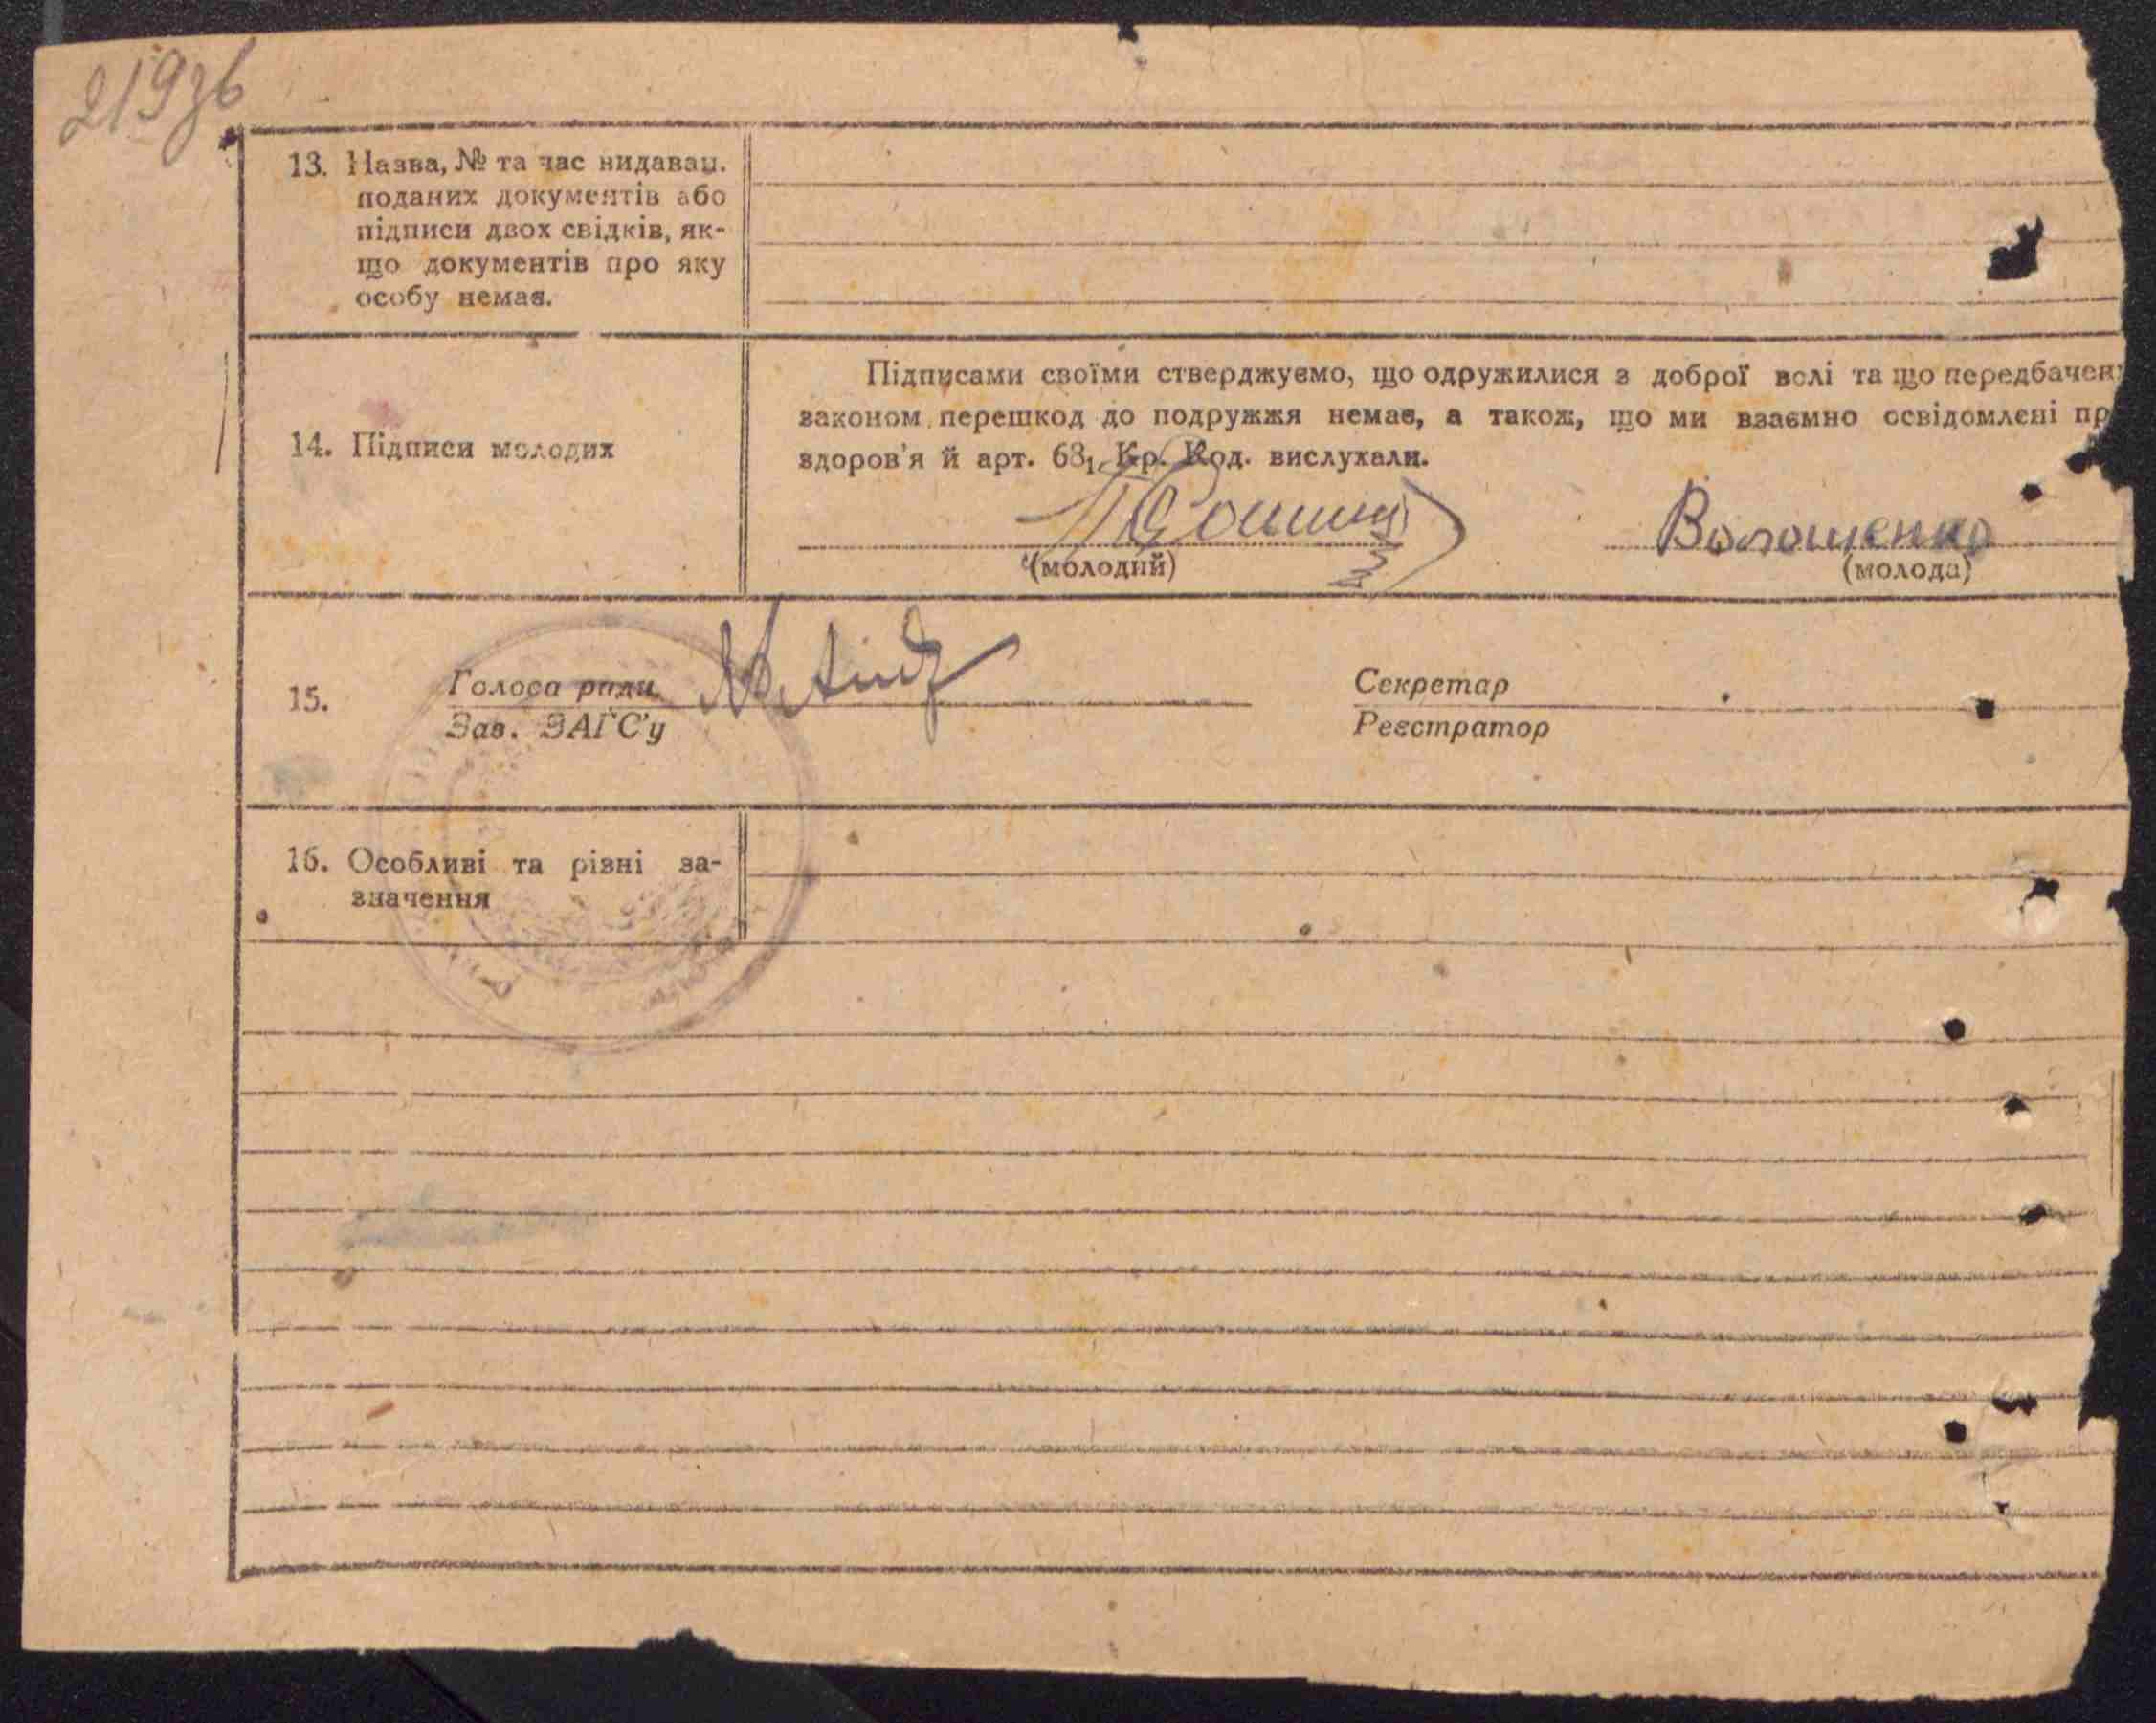 219зв
13. Назва, № та час видаван.
поданих документів або
підписи двох свідків, як-
що документів про яку
особу немає.
14. Підписи молодих
Підписами своїми стверджуємо, що одружилися з доброї волі та що передбачен
законом перешкод до подружжя немає, а також, що ми взаємно освідомлені пр
здоров'я й арт. 68₁ Кр. Код. вислухали.
Волошенко
(молодий)
(молода)
15.
Голова ради
Зав. ЗАГС'у
Секретар
Реєстратор
16. Особливі та різні за-
значення